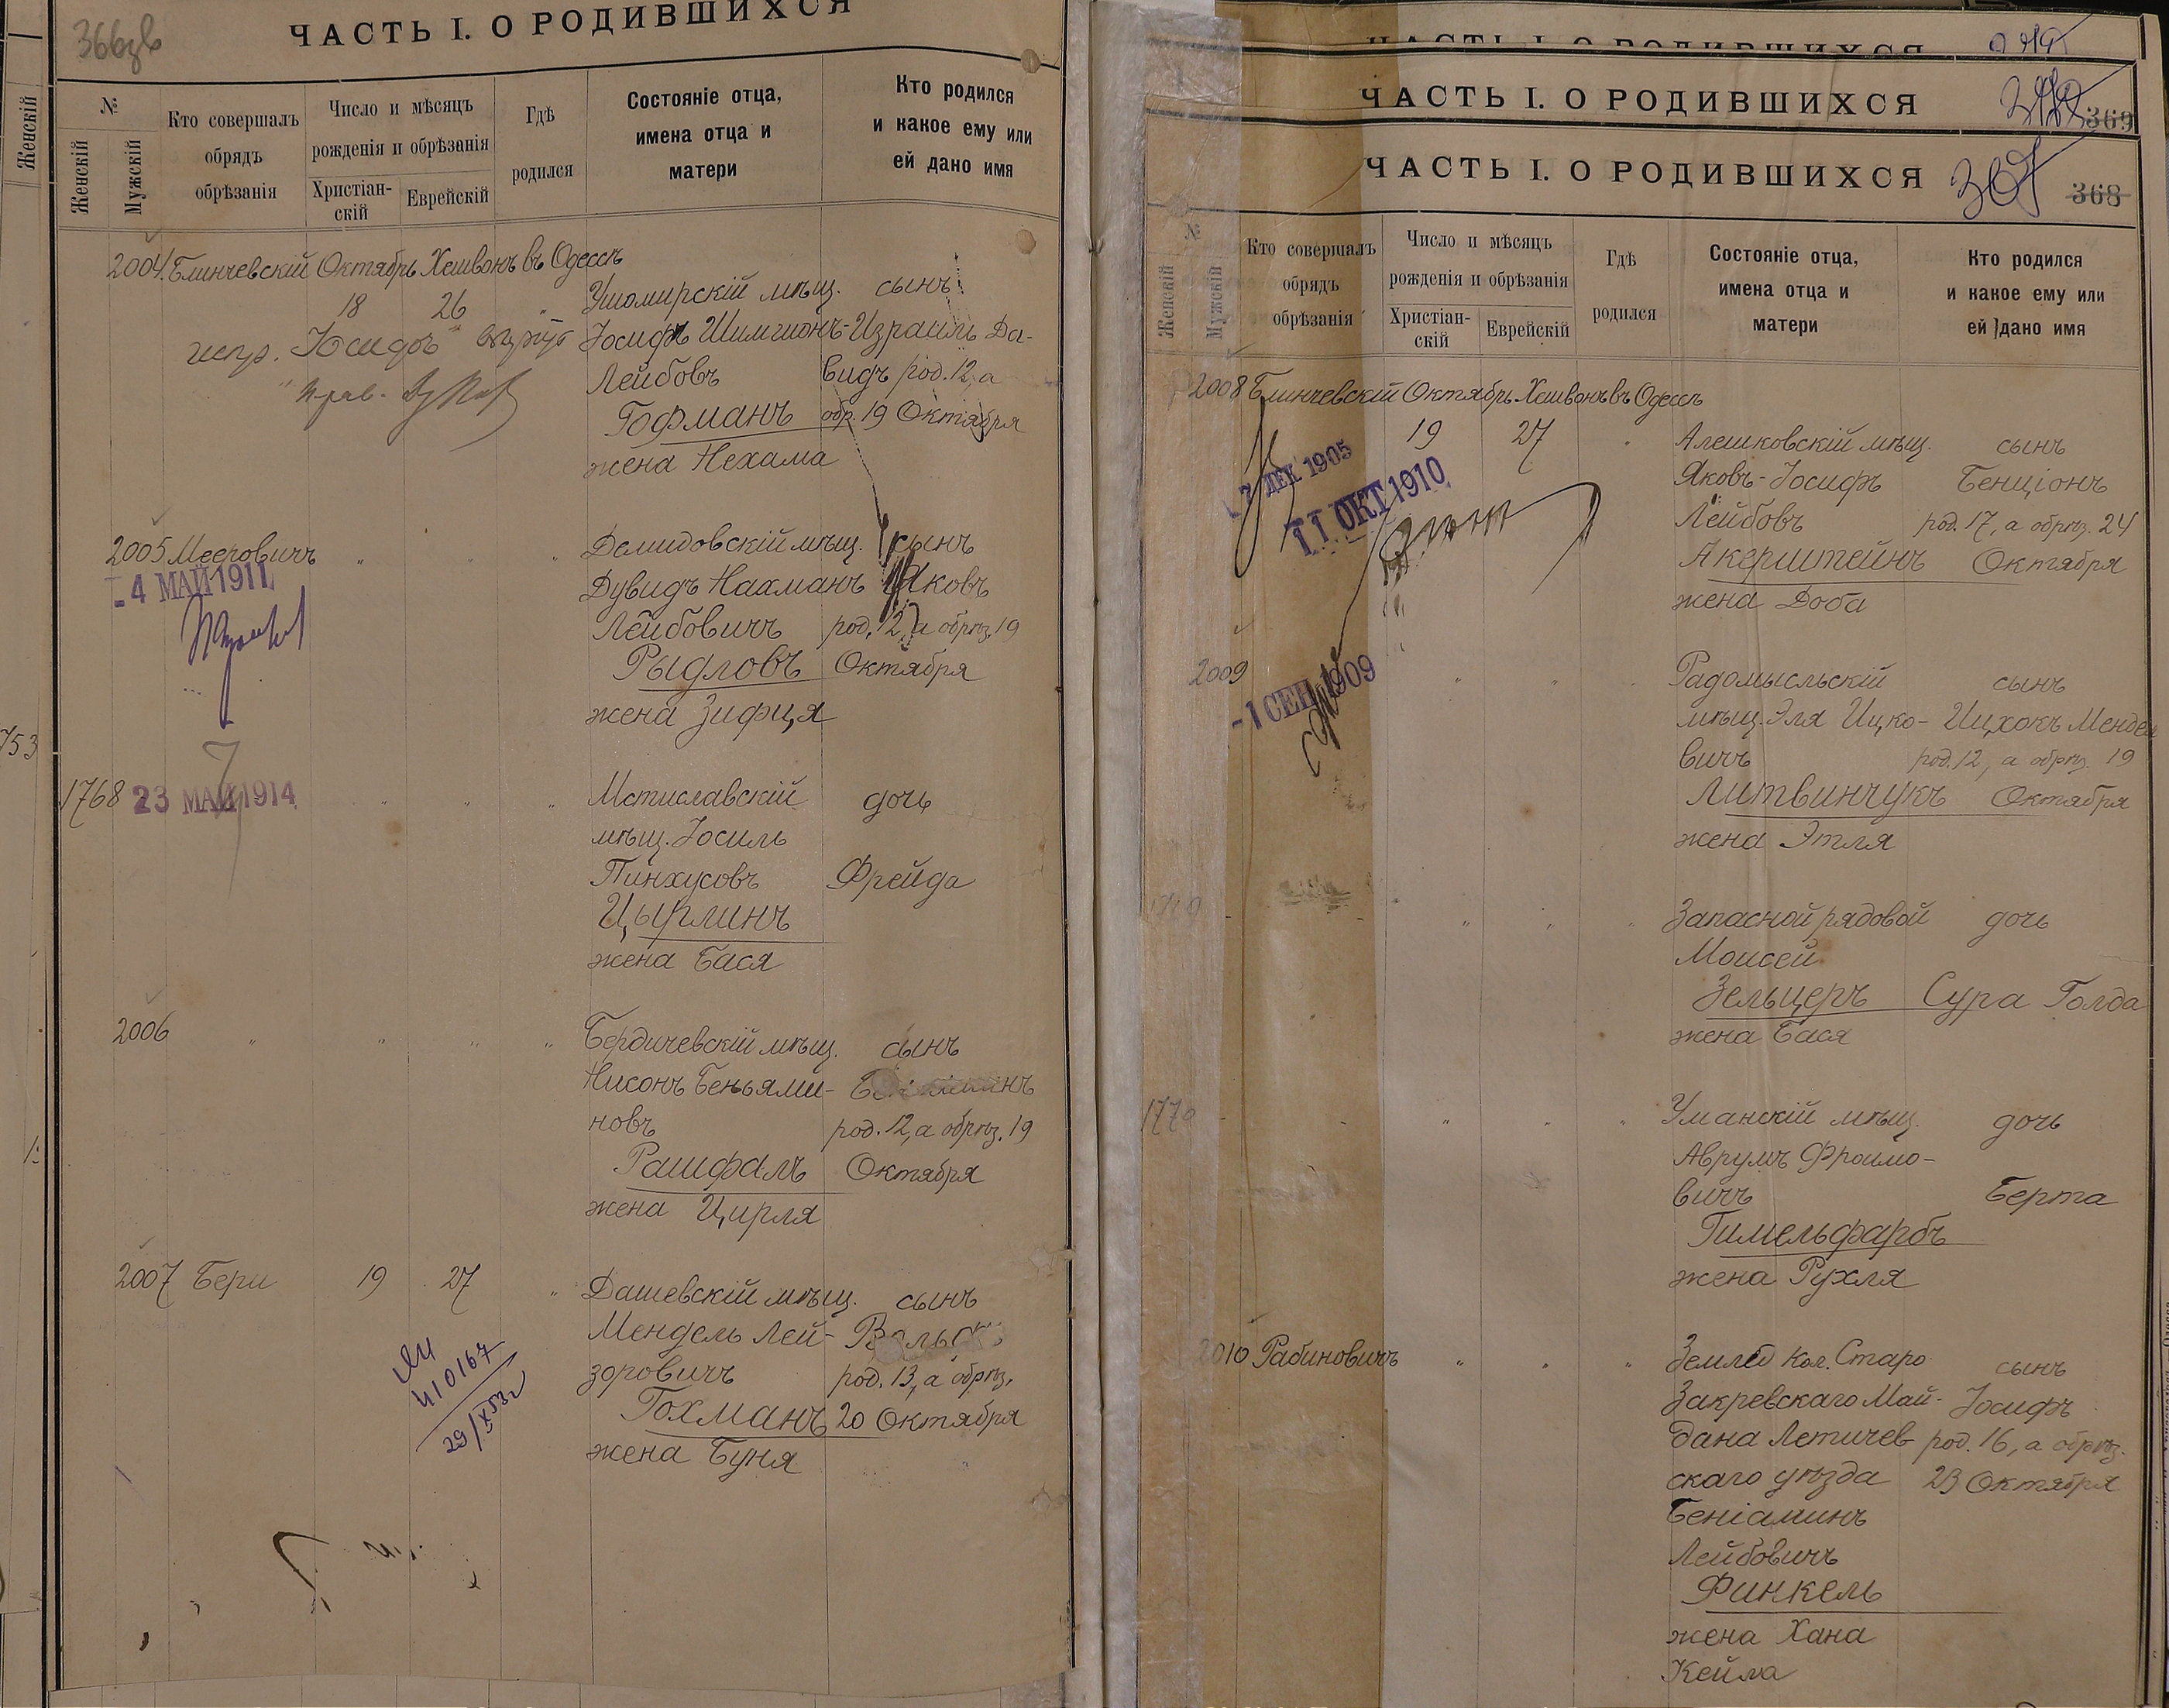 366
ЧАСТЬ I. О РОДИВШИХСЯ
Женскій
№
Женскій
Мужскій
Кто совершалъ
обрядъ
обрѣзанія
Число и мѣсяцъ
рожденія и обрѣзанія
Христіан-
скій
Еврейскій
Гдѣ
родился
Состояніе отца,
имена отца и
матери
Кто родился
и какое ему или
ей дано имя
2004 Блинчевскій Октябрь Хешвонъ въ Одессѣ
18 26 " Ушомирскій мѣщ. сынъ
Іосифъ Шимшонъ- Израиль Да-
Лейбовъ видъ род. 12, а
Гофманъ обр. 19 Октября
жена Нехама
2005 Мееровичъ " " Демидовскій мѣщ. сынъ
-4 МАЙ 1911
Дувидъ Нахманъ Яковъ
Лейбовичъ род. 12, а обрѣз. 19
Рыдловъ Октября
жена Зифця
753
1768 23 МАЙ 1914 " " " Мстиславскій дочь
мѣщ. Іосиль
Пинхусовъ Фрейда
Цырлинъ
жена Бася
2006 " " " " Бердичевскій мѣщ. сынъ
Нисонъ Беньями-
новъ род. 12, а обрѣз. 19
Рашфалъ Октября
жена Цирля
2007 Бери 19 27 " Дашевскій мѣщ. сынъ
Мендель Лей-
зоровичъ род. 13, а обрѣз.
Гохманъ 20 Октября
жена Буня
410167
29/X 53г
ЧАСТЬ I. О РОДИВШИХСЯ
ЧАСТЬ I. О РОДИВШИХСЯ
369
ЧАСТЬ I. О РОДИВШИХСЯ
367
368
№
Женскій
Мужскій
Кто совершалъ
обрядъ
обрѣзанія
Число и мѣсяцъ
рожденія и обрѣзанія
Христіан-
скій
Еврейскій
Гдѣ
родился
Состояніе отца,
имена отца и
матери
Кто родился
и какое ему или
ей дано имя
2008 Блинчевскій Октябрь Хешвонъ въ Одессѣ
19 27 " Алешковскій мѣщ. сынъ
7 ДЕК 1905
11 ОКТ 1910
Яковъ-Іосифъ Бенціонъ
Лейбовъ род. 17, а обрѣз. 24
Акерштейнъ Октября
жена Доба
2009 " " Радомысльскій сынъ
-1 СЕН 1909
мѣщ. Эля Ицко- Ицхокъ Мендел
вичъ род. 12, а обрѣз. 19
Литвинчукъ Октября
жена Этля
" " " Запасной рядовой дочь
Моисей
Зельцеръ Сура Голда
жена Бася
1770 " " " Уманскій мѣщ. дочь
Аврумъ Фроимо-
вичъ Берта
Гимельфарбъ
жена Рухля
2010 Рабиновичъ " " " Землед Кол. Старо сынъ
Закревскаго Май- Іосифъ
дана Летичев род. 16, а обрѣз.
скаго уѣзда 23 Октября
Беніаминъ
Лейбовичъ
Финкель
жена Хана
Кейла